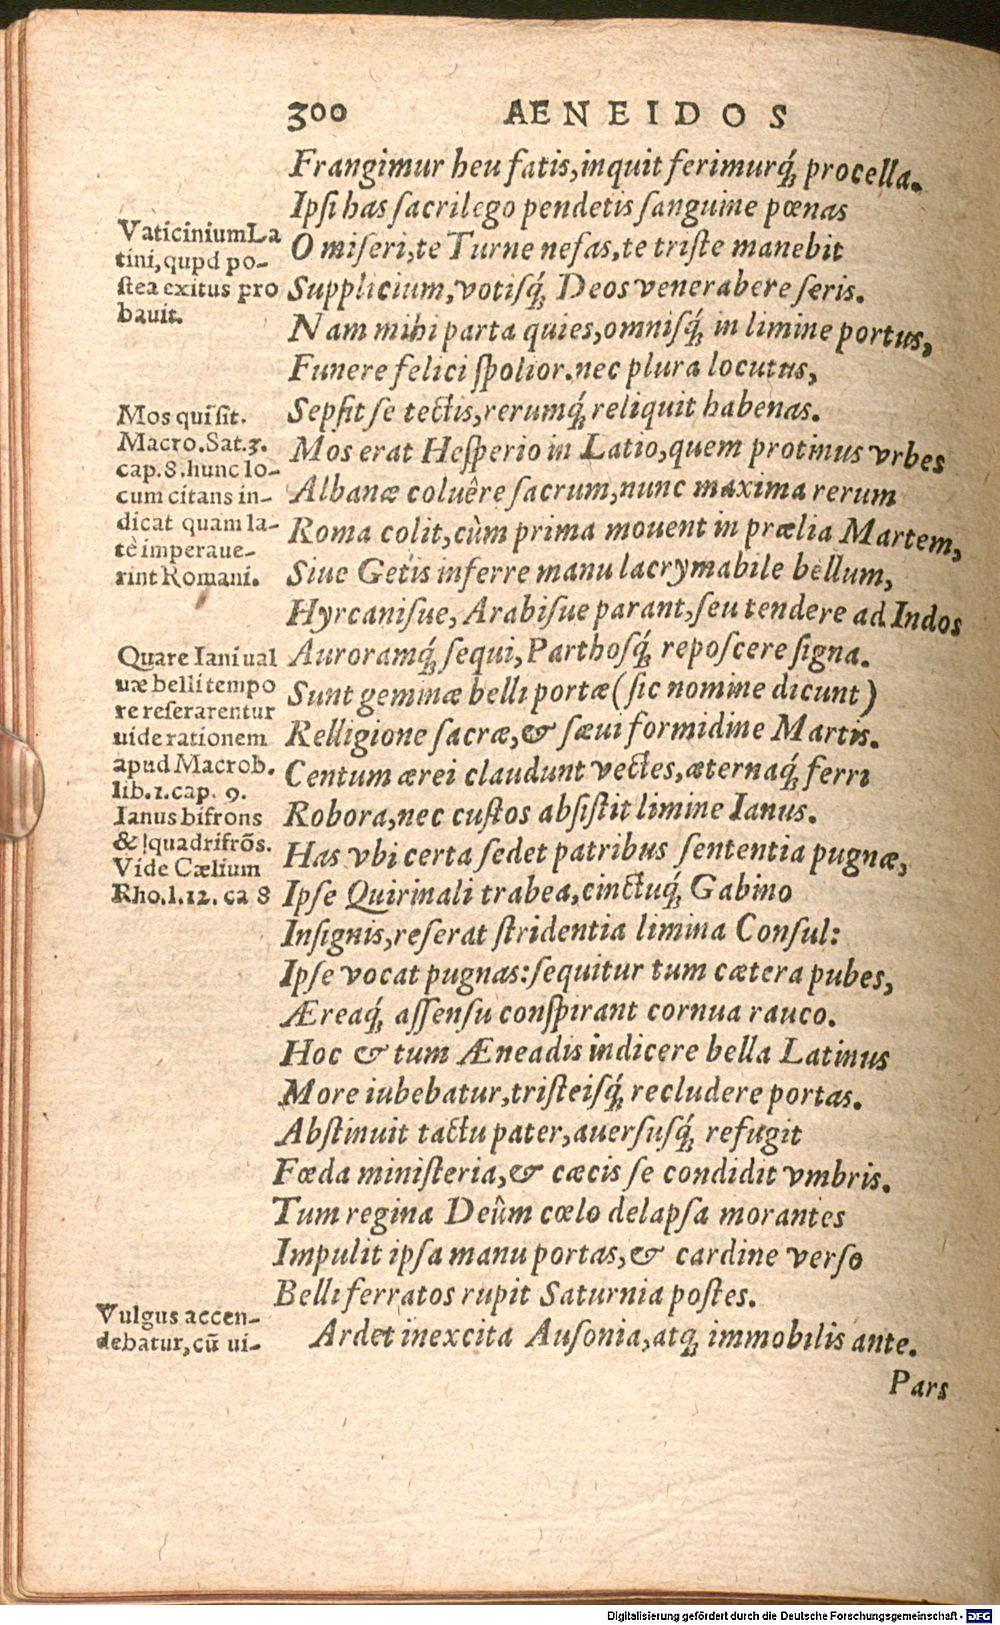 300 AENEIDOS
Frangimur heu fatis, inquit ferimurq́; procella.
Ipsi has sacrilego pendetis sanguine pœnas
O miseri, te Turne nefas, te triste manebit
Supplicium, votisq́; Deos venerabere seris.
Nam mihi parta quies, omnisq́; in limine portus,
Funere felici spolior. nec plura locutus,
Sepsit se tectis, rerumq́; reliquit habenas.
Mos erat Hesperio in Latio, quem protinus vrbes
Albanæ coluêre sacrum, nunc maxima rerum
Roma colit, cùm prima mouent in prælia Martem,
Siue Getis inferre manu lacrymabile bellum,
Hyrcanisue, Arabisue parant, seu tendere ad Indos
Auroramq́; sequi, Parthosq́; reposcere signa.
Sunt geminæ belli portæ (sic nomine dicunt)
Relligione sacræ, & sæui formidine Martis.
Centum ærei claudunt vectes, æternaq́; ferri
Robora, nec custos absistit limine Ianus.
Has vbi certa sedet patribus sententia pugnæ,
Ipse Quirinali trabea, cinctuq́; Gabino
Insignis, reserat stridentia limina Consul:
Ipse vocat pugnas: sequitur tum cætera pubes,
Æreaq́; assensu conspirant cornua rauco.
Hoc & tum Æneadis indicere bella Latinus
More iubebatur, tristeisq́; recludere portas.
Abstinuit tactu pater, auersusq́; refugit
Fœda ministeria, & cæcis se condidit vmbris.
Tum regina Deûm cœlo delapsa morantes
Impulit ipsa manu portas, & cardine verso
Belli ferratos rupit Saturnia postes.
Ardet inexcita Ausonia, atq; immobilis ante.
Pars
Vaticinium La
tini, qupd po-
stea exitus pro
bauit.
Mos qui sit.
Macro. Sat. 3.
cap. 8. hunc lo-
cum citans in-
dicat quam la-
tè imperaue-
rint Romani.
Quare Iani ual
uæ belli tempo
re reserarentur
uide rationem
apud Macrob.
lib. 1. cap. 9.
Ianus bifrons
& quadrifrõs.
Vide Cælium
Rho. l. 12. ca 8
Vulgus accen-
debatur, cũ ui-
Digitalisierung gefördert durch die Deutsche Forschungsgemeinschaft - DFG